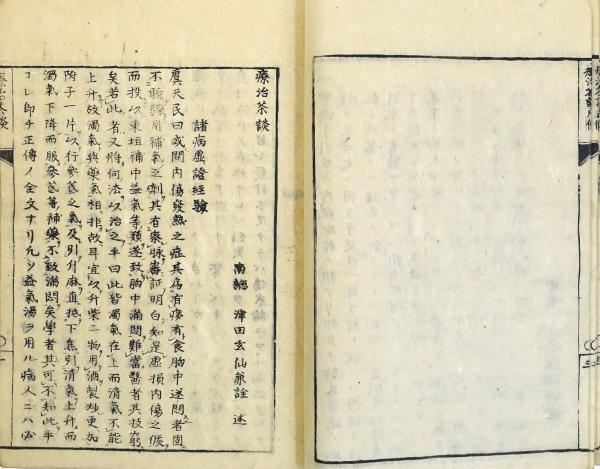 療治茶談
南總 津田玄仙兼詮 述
諸病虛證經驗
虞天民曰或問內傷發熱之症其爲有痰有食胸中迷悶者固
不敢驟用補氣之劑其有察脉審証明白知是虛損內傷之候
而投以東垣補中益氣等類遂致胸中滿悶難當醫者其技窮
矣若此者又將何法以治之乎曰此皆濁氣在上而清氣不能
上升故濁氣與藥氣相拒故耳宜以升柴二物用酒製炒更加
附子一片以行參芪之氣及引升麻直抵下焦引清氣上升而
濁氣下降而服參芪等補藥不致滿悶矣學者其可不知此乎
コレ即チ正傳ノ全文ナリ凡ソ益氣湯ヲ用ル病人ニハ必